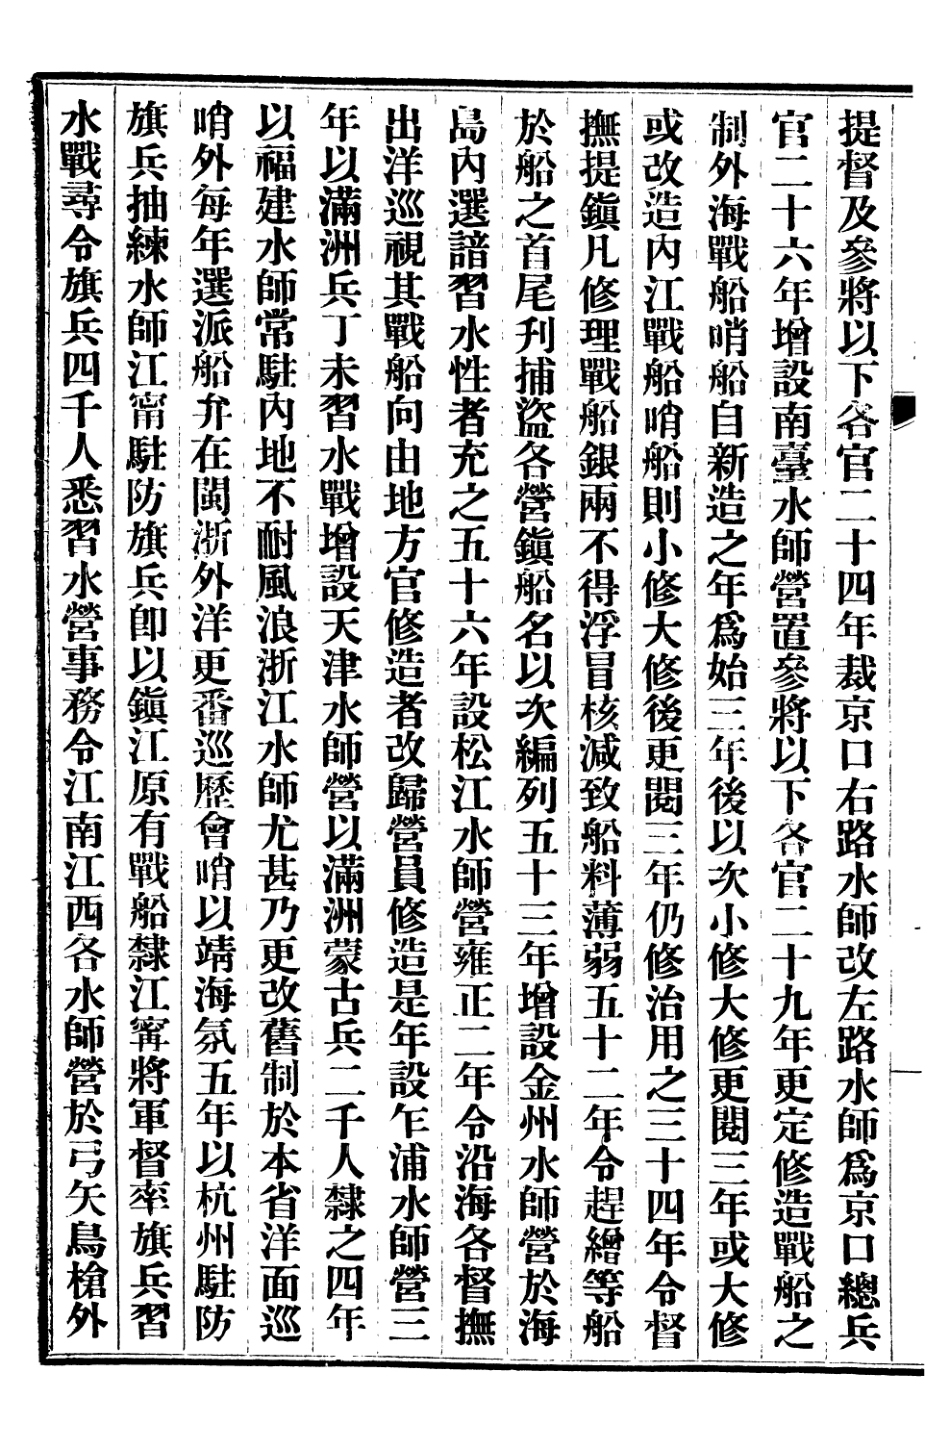 提督及參將以下各官二十四年裁京口右路水師改左路水師爲京口總兵
官二十六年增設南臺水師營置參將以下各官二十九年更定修造戰船之
制外海戰船哨船自新造之年爲始三年後以次小修大修更閱三年或大修
或改造內江戰船哨船則小修大修後更閱三年仍修治用之三十四年令督
撫提鎭凡修理戰船銀兩不得浮冒核減致船料薄弱五十二年令趕繒等船
於船之首尾刋捕盜各營鎭船名以次編列五十三年增設金州水師營於海
島內選諳習水性者充之五十六年設松江水師營雍正二年令沿海各督撫
出洋巡視其戰船向由地方官修造者改歸營員修造是年設乍浦水師營三
年以滿洲兵丁未習水戰增設天津水師營以滿洲蒙古兵二千人隸之四年
以福建水師常駐內地不耐風浪浙江水師尤甚乃更改舊制於本省洋面巡
哨外每年選派船弁在閩浙外洋更番巡歷會哨以靖海氛五年以杭州駐防
旗兵抽練水師江甯駐防旗兵卽以鎭江原有戰船隸江寗將軍督率旗兵習
水戰尋令旗兵四千人悉習水營事務令江南江西各水師營於弓矢鳥槍外